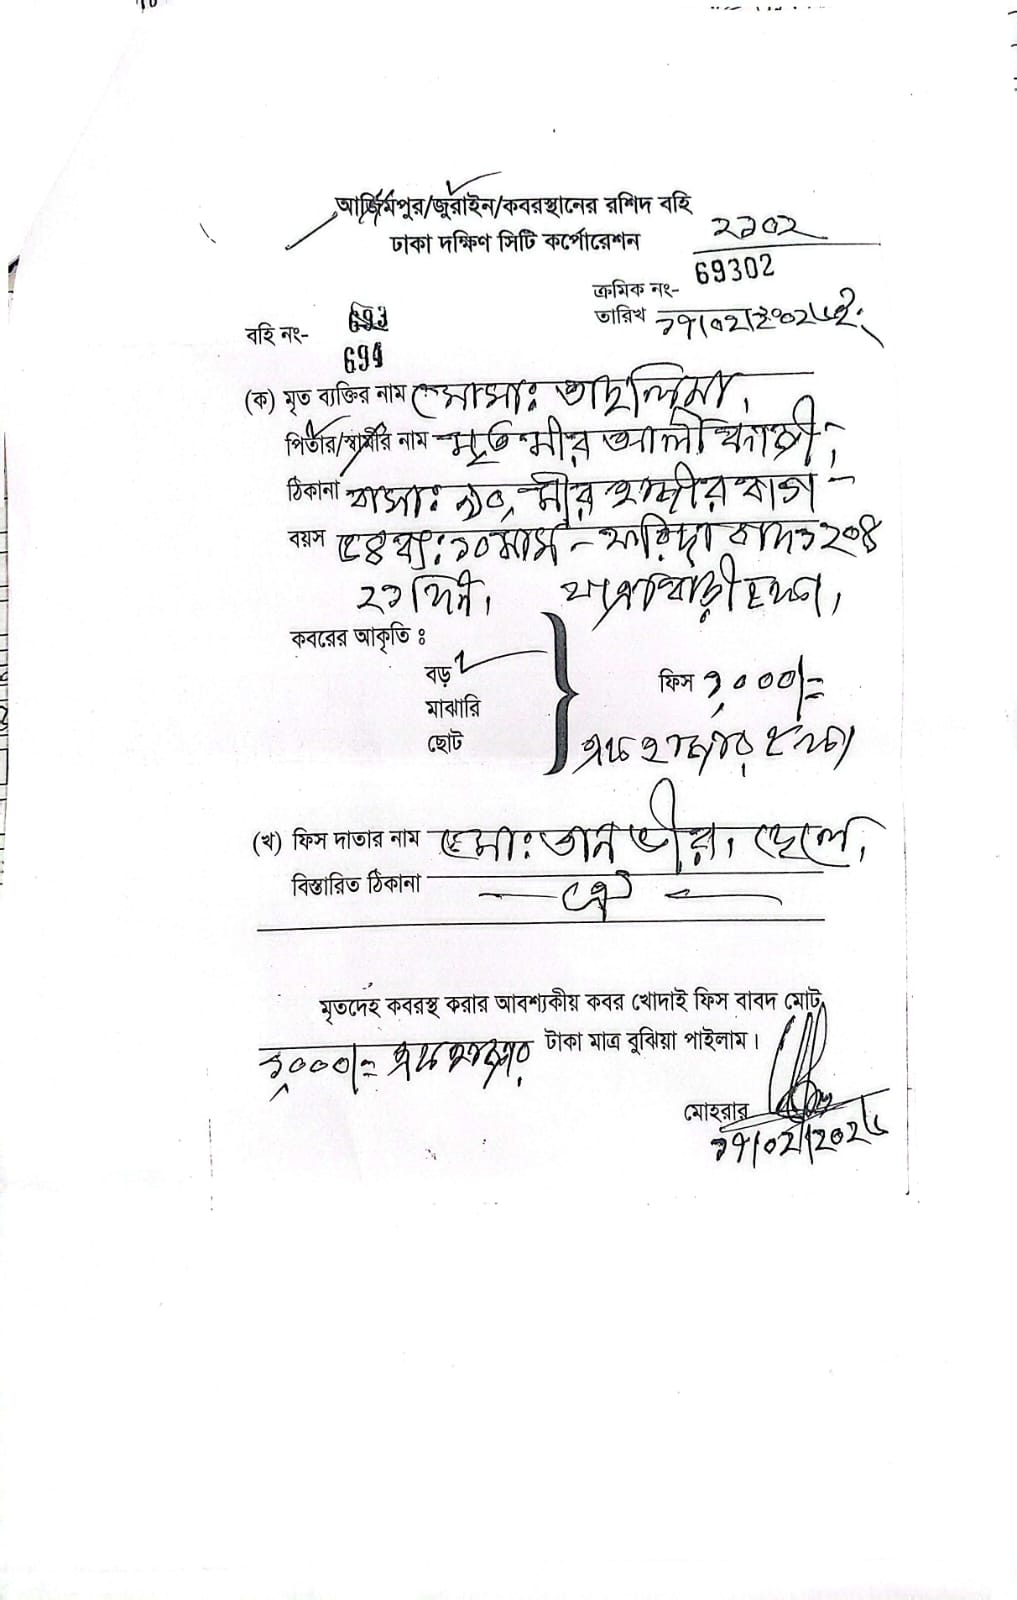 আজিমপুর/জুরাইন/কবরস্থানের রশিদ বহি
ঢাকা দক্ষিণ সিটি কর্পোরেশন
২১০২
69302
ক্রমিক নং-
তারিখ ১৭/০২/২০২৬ইং
বহি নং-
693
694
(ক) মৃত ব্যক্তির নাম মোসাঃ তাছলিমা,
পিতার/স্বামীর নাম মৃত মীর আলী কাজী,
ঠিকানা বাসাঃ ৯০, মীর হাজীর বাগ
বয়স ৫৪ বঃ ১০ মাস
২১ দিন। যাত্রাবাড়ী ঢাকা।
কবরের আকৃতি :
বড়
মাঝারি
ছোট
ফিস ১,০০০/=
এক হাজার টাকা
(খ) ফিস দাতার নাম মোঃ তানভীর, ছেলে,
বিস্তারিত ঠিকানা ঐ
মৃতদেহ কবরস্থ করার আবশ্যকীয় কবর খোদাই ফিস বাবদ মোট
১,০০০/= এক হাজার টাকা মাত্র বুঝিয়া পাইলাম।
মোহরার
১৭/০২/২০২৬